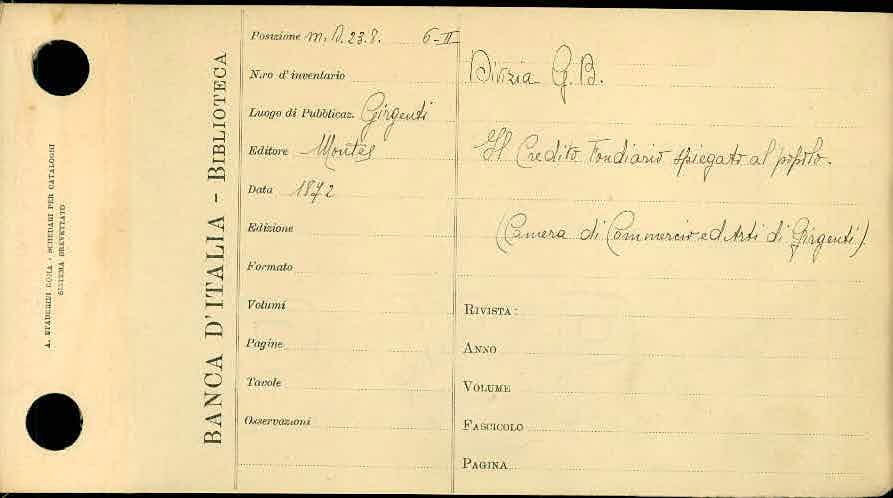 A. STADERINI ROMA - SCHEDARI PER CATALOGHI
SISTEMA BREVETTATO
BANCA D'ITALIA - BIBLIOTECA
Posizione m. D. 23.8. 6-II
N.ro d'inventario
Luogo di Pubblicaz. Girgenti
Editore Montes
Data 1872
Edizione
Formato
Volumi
Pagine
Tavole
Osservazioni
Divizia G. B.
Il Credito Fondiario spiegato al popolo.
(Camera di Commercio ed Arti di Girgenti).
RIVISTA:
ANNO
VOLUME
FASCICOLO
PAGINA